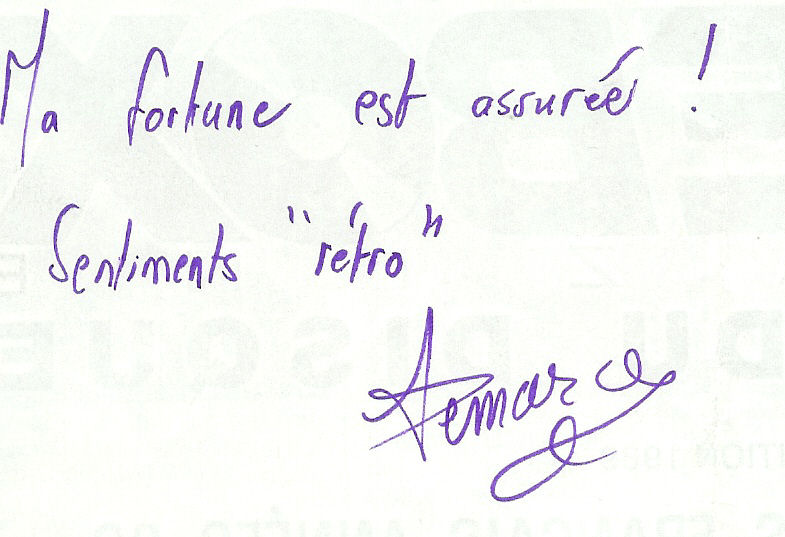 Ma fortune est assurée !
Sentiments "rétro"